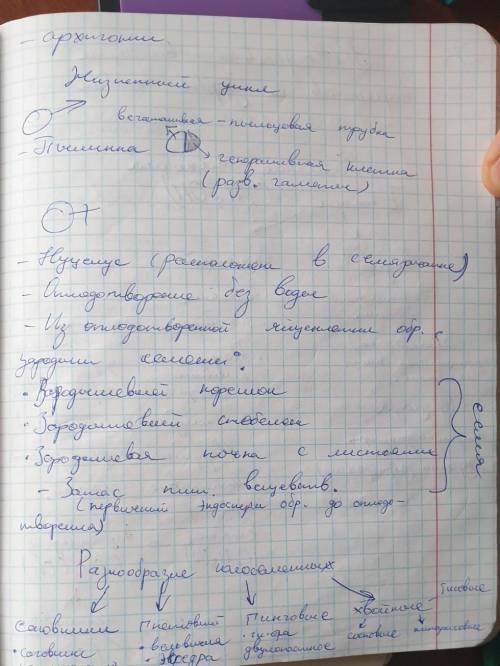 - архигонии
Жизненный цикл
вегетативная - пыльцевая трубка
- Пылинка
генеративная клетка
(разв. гаметы)
- Нуцелус (расположен в семязачатке)
- Оплодотворение без воды
- Из оплодотворенной яйцеклетки обр.
зародыш семени:
• Зародышевый корешок
• Зародышевый стебелек
• Зародышевая почка с листьями
семя
- Запас пит. веществ.
(первичный эндосперм обр. до оплодо-
творения)
Разнообразие голосеменных
Саговники Гнетовый Гинговые хвойные - Тисовые
• саговника • вельвичия • гинкго сосновые кипарисовые
• эфедра двулопастное